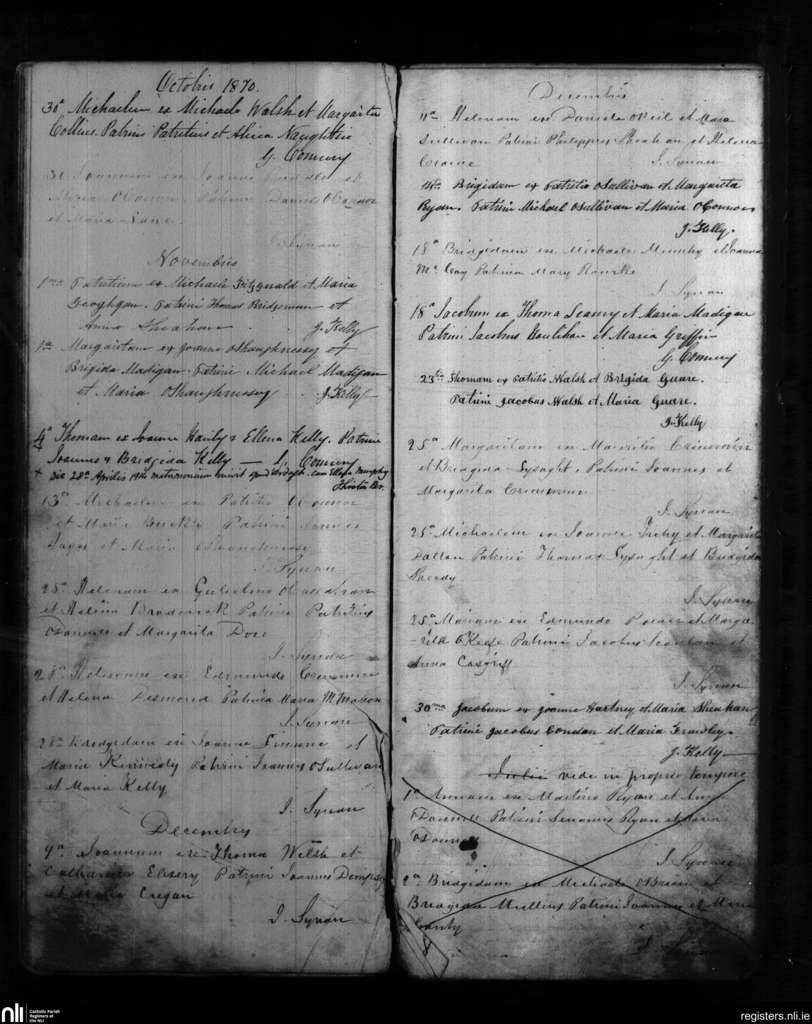 Octobris 1870.
30a Michaelem ex Michaele Walsh et Margarita
Collins Patrini Patritius et Alicia Naughtin
G. Comeny
31 Joannem ex Joanne et
Maria O'Connor Patrini Daniel O'Connor
et Maria
J. Synan
Novembris
1ma Patritium ex Michaele Fitzgerald et Maria
Geoghgan. Patrini Thomas Bridgeman et
Anna Sheahan J. Kelly
1a Margaritam ex Joanne OShaughnessy et
Brigida Madigan Patrini Michael Madigan
et Maria OShaughnessy J. Kelly
4a Thomam ex Joanne Hanly & Ellena Kelly. Patrini
Joannes & Bridgida Kelly — G. Comeny
+ Die 28a Aprilis 1914 matrimonium inivit apud cum Ellen Murphy
13a Michaelem ex Patritio O Connor
et Maria Burke Patrini
et Maria
J. Synan
28a Helenam ex Gulielmo Callahan
et Helena Broderick Patrini Patritius
O'Donnell et Margarita Dore
J. Synan
28a Helenam ex Edmundo
et Helena Desmond Patrina Maria McMahon
J. Synan
28a Bridgidam ex Joanne et
Maria Kennedy Patrini Joannes OSullivan
et Maria Kelly
J. Synan
Decembris
9a Joannem ex Thoma Welsh et
Catharina Patrini Joannes Dempsey
et Maria Cregan
J. Synan
Decembris
11a Helenam ex Daniele O'Neil et Maria
Sullivan Patrini Philippus Sheahan et Helena
Crowe J. Synan
14a Brigidam ex Patritio OSullivan et Margarita
Ryan. Patrini Michael OSullivan et Maria OConnor
J. Kelly.
18a Bridgidam ex Michaele et Joanna
Mc Coy Patrina Mary Rourke
J. Synan
18a Jacobum ex Thoma Leamy et Maria Madigan
Patrini Jacobus Houlihan et Maria Griffin
G. Comeny
23a Thomam ex Patritio Walsh et Brigida Guare.
Patrini Jacobus Walsh et Maria Guare.
J. Kelly
25a Margaritam ex Mauritio Crimmin
et Bridgida Lysaght, Patrini Joannes et
Margarita Crimmin
J. Synan
25a Michaelem ex Joanne et Margarita
Dalton Patrini Thomas Lysaght et Bridgida
Sheedy
J. Synan
25a Mariam ex Edmundo Power et Marga
-rita O'Keefe Patrini Jacobus Scanlan et
Anna Cosgriff
J. Synan
30ma Jacobum ex Joanne Hartney et Maria Sheehan
Patrini Jacobus Condon et Maria Frawley.
J. Kelly
vide in proprio tempore
1a Annam ex Martino Ryan et Anna
O'Donnell Patrini Ryan et Maria
O'Donnell
J. Synan
2a Bridgidam ex Michaele OBrien et
Bridgida Mullins Patrini Joannes et Maria
J. Synan
nli
Catholic Parish
Registers at
the NLI
registers.nli.ie